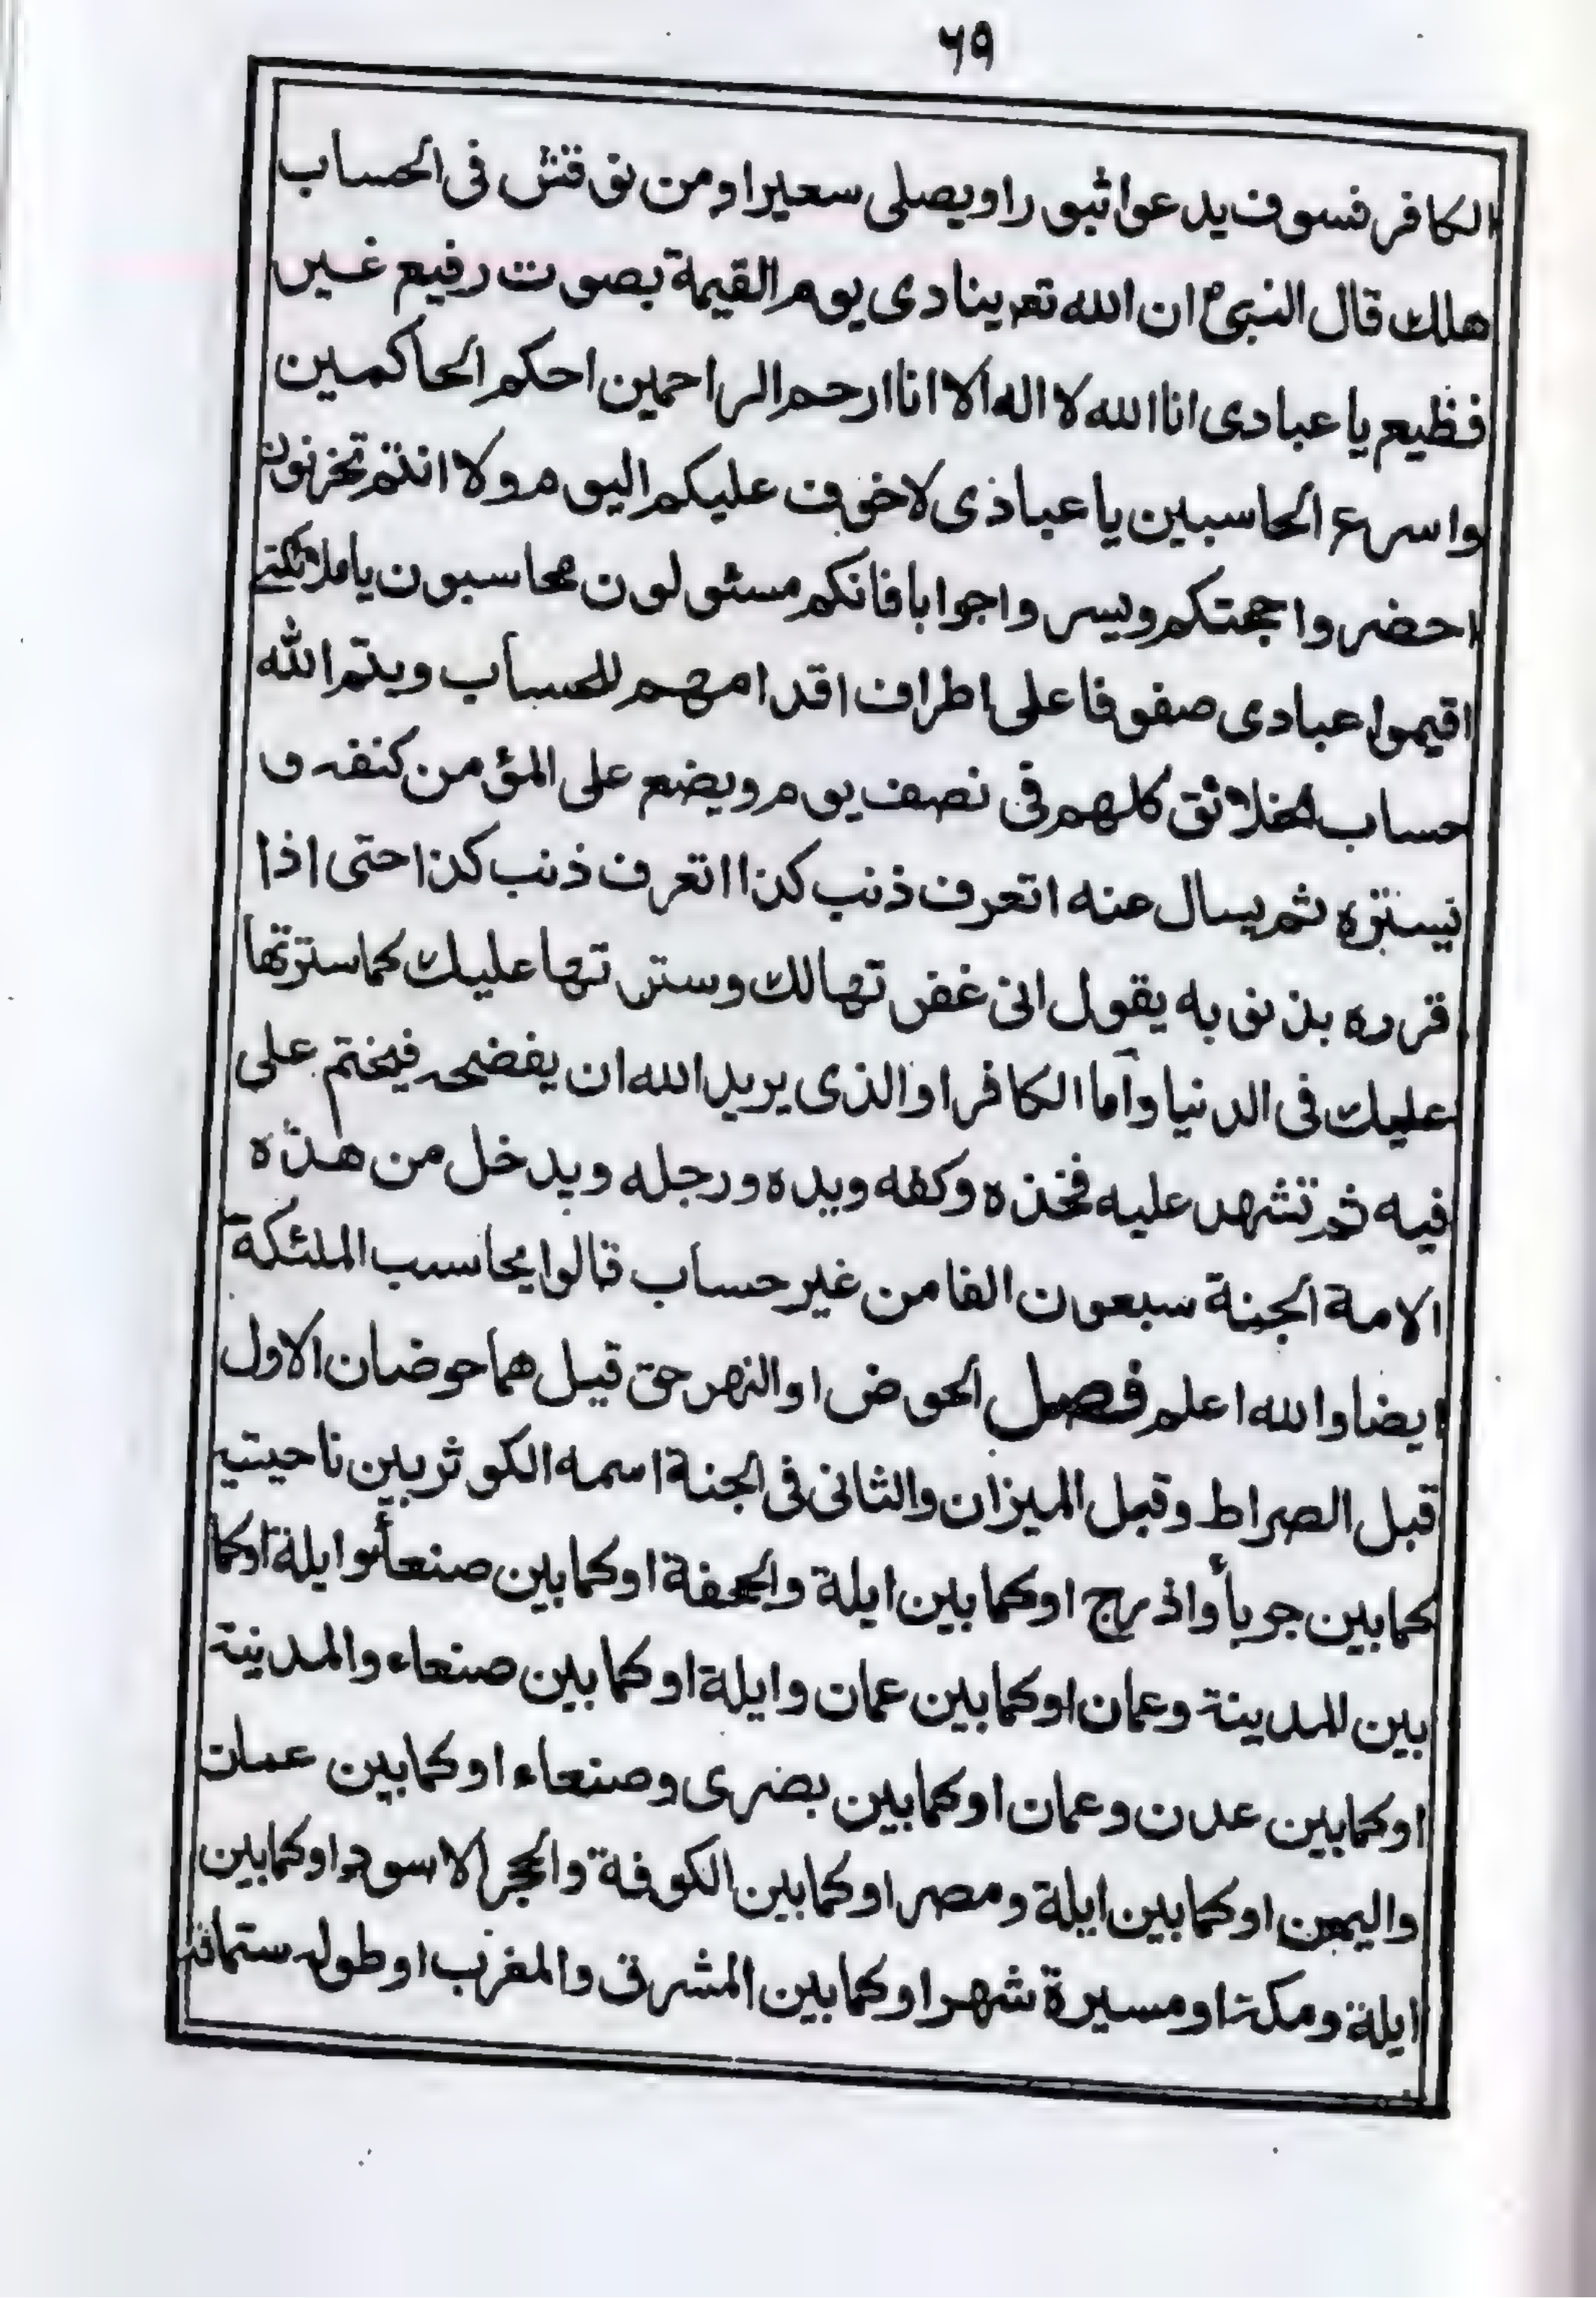 ٦٩
الكافر فسوف يدعوا ثبورا ويصلى سعيرا ومن نوقتش فى الحساب
هلك قال النبىؐ ان الله تعہ ينادى يوم القيمة بصوت رفيع غير
فظيع يا عبادى انا الله لا اله الا انا ارحم الراحمين احكم الحاكمين
واسرع الحاسبين يا عباذى لاخوف عليكم اليوم ولا انتم تخزنون
احضروا حجتكم ويسروا جوابا فانكم مسئولون محاسبون يا ملائكتى
اقيموا عبادى صفوفا على اطراف اقدامهم للحساب ويتم الله
حساب الخلائق كلهم فى نصف يوم ويضع على المؤمن كنفه و
يستره ثم يسال عنه اتعرف ذنب كذا اتعرف ذنب كذا حتى اذا
قرره بذنوبه يقول انى غفرتها لك وسترتها عليك كما سترتها
عليك فى الدنيا واما الكافر او الذى يريد الله ان يفضحه فيختم على
فيه ثم تشهد عليه فخذه وكفه ويده ورجله ويدخل من هذه
الامة الجنة سبعون الفا من غير حساب قالوا يحاسب الملئكة
ايضا والله اعلم فصل الحوض او النهر حق قيل هما حوضان الاول
قبل الصراط وقبل الميزان والثانى فى الجنة اسمه الكوثر بين ناحيتيه
كما بين جربأ واذرج او كما بين ايلة والجحفة او كما بين صنعأ وايلة او كما
بين المدينة وعمان او كما بين عمان وايلة او كما بين صنعاء والمدينة
او كما بين عدن وعمان او كما بين بضرى وصنعاء او كما بين عمان
واليمن او كما بين ايلة ومصر او كما بين الكوفة والحجر الاسود او كما بين
ايلة ومكة او مسيرة شهر او كما بين المشرق والمغرب او طوله ستمائة